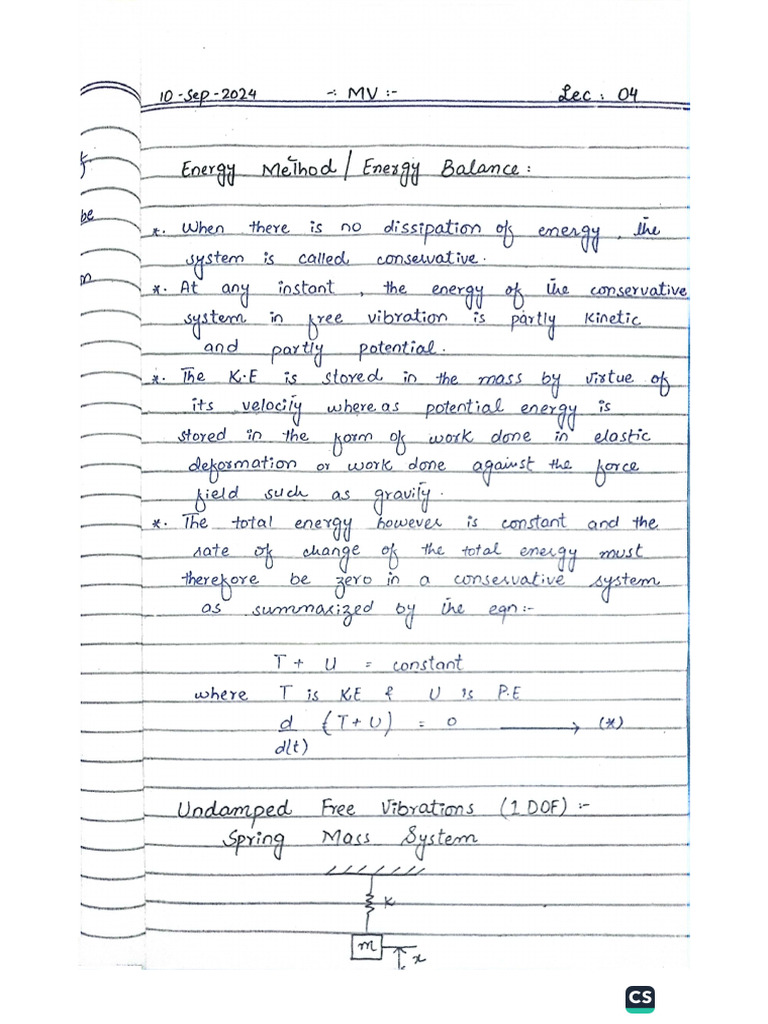 10-Sep-2024 -: MV :- Lec : 04
Energy Method / Energy Balance :
be
*. When there is no dissipation of energy, the
system is called conservative.
*. At any instant, the energy of the conservative
system in free vibration is partly kinetic
and partly potential.
*. The K.E is stored in the mass by virtue of
its velocity where as potential energy is
stored in the form of work done in elastic
deformation or work done against the force
field such as gravity.
*. The total energy however is constant and the
rate of change of the total energy must
therefore be zero in a conservative system
as summarized by the eqn:-
T + U = constant
where T is K.E & U is P.E
d (T+U) = 0 → (*)
d(t)
Undamped Free Vibrations (1 DOF) :-
Spring Mass System
K
m
x
CS